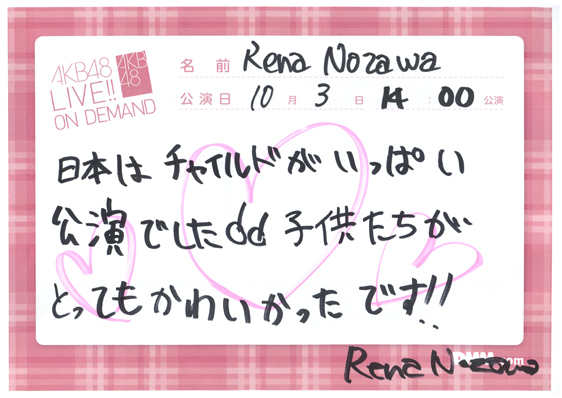 AKB48
LIVE!!
ON DEMAND
AKB
48
名前 Rena Nozawa
公演日 10月3日 14:00公演
日本は チャイルドがいっぱい
公演でしたdd 子供たちが
とってもかわいかったです!!
Rena Nozawa
DMM.com